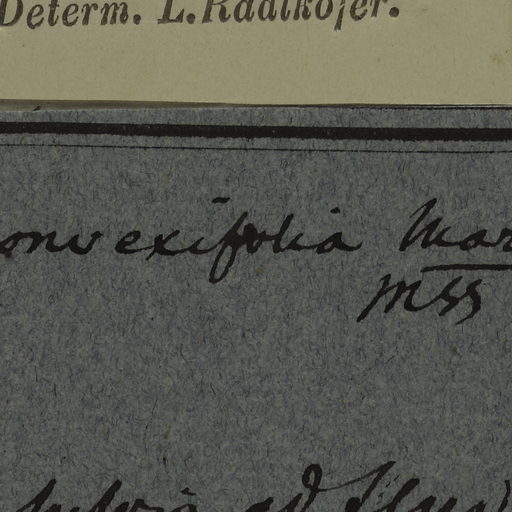 Determ. L. Radlkofer.
onvexifolia Mar
mss
ad